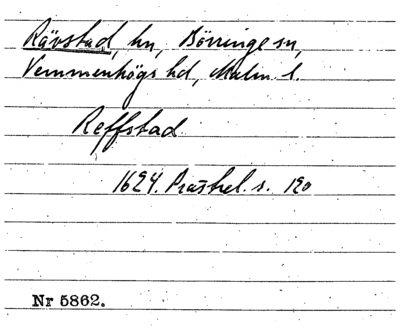 Rävstad, hn, Börringe sn,
Vemmenhögs hd, Malm. l.
Reffstad
1624. Prästrel. s. 190
Nr 5862.